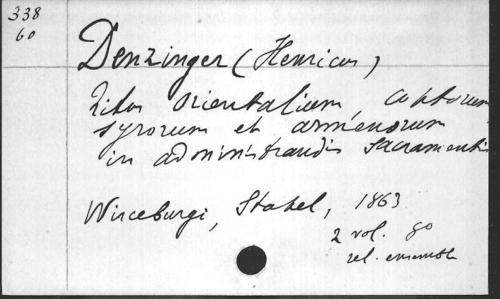 338
60
Denzinger (Henricus)
Ritus Orientalium, coptorum
syrorum et armenorum
in administrandis sacramentis
Wirceburgi, Stahel, 1863
2 vol. 8o
rel. ensemble